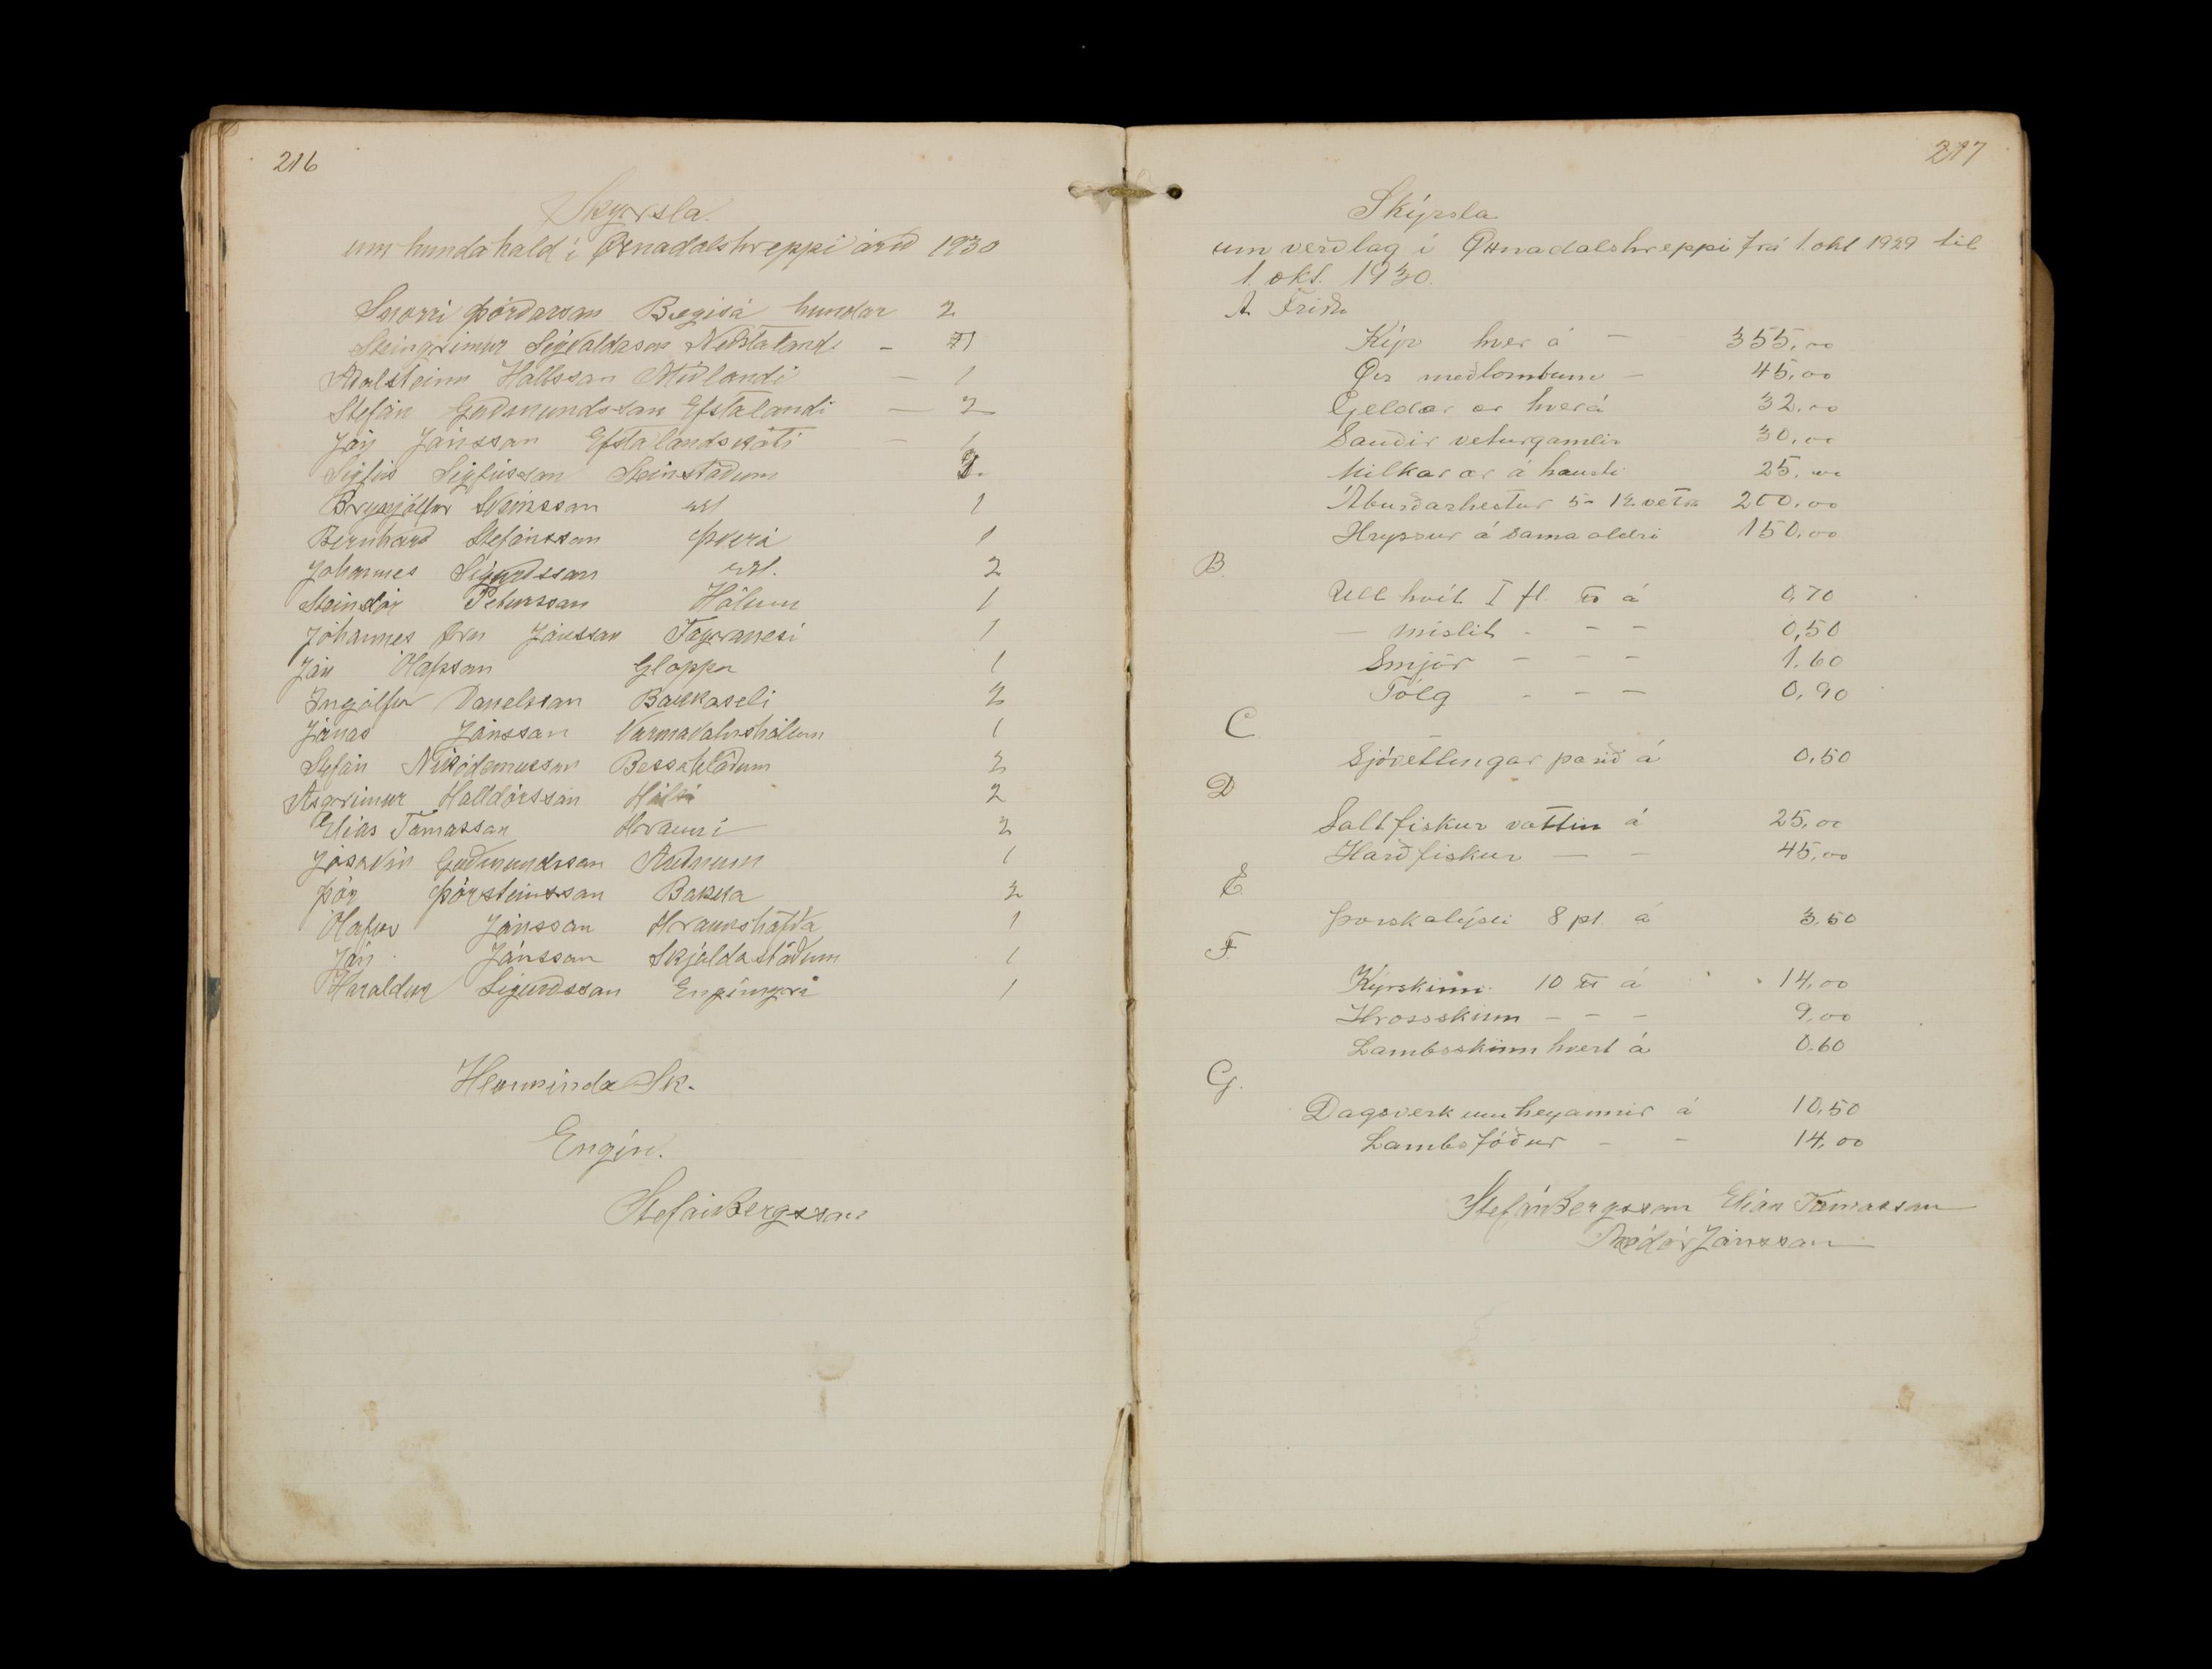 216
Skyrsla.
um hundahald í Öxnadalshreppi árið 1930
Snorri Þórðarson Bægisá hundar 2
Steingrímur Sigvaldason Neðstalandi – 1
Aðalsteinn Hallsson Miðlandi – 1
Stefán Guðmundsson Efstalandi – 2
Jón Jónsson Efstalandskoti – 1
Sigfús Sigfússon Steinstöðum
Brynjólfur Sveinsson s.st 1
Bernharð Stefánsson Þverá 1
Jóhannes Sigurðsson s.st. 2
Steindór Pétursson Hólum 1
Jóhannes Örn Jónsson Fagranesi 1
Jón Ólafsson Gloppu 1
Ingólfur Danelsson Bakkaseli 2
Jónas Jónsson Varmavatnshólum 1
Stefán Nikódemusson Bessahlöðum 2
Asgrímur Halldórsson Hálsi 2
Elías Tómasson Hrauni 2
Jósavin Guðmundsson Auðnum 1
Þór Þórsteinsson Bakka 2
Ólafur Jónsson Hraunshöfða 1
Jón Jónsson Skjaldastöðum 1
Haraldur Sigurðsson Engimýri 1
Hlunninda Sk.
Engin.
Stefán Bergsson
217
Skýrsla
um verðlag í Öxnadalshreppi frá 1. okt 1929 til
1. okt. 1930.
A Fríðu
Kýr hver á – 355,00
Ær með lombum – 45,00
Geldar ær hver á 32,00
Sauðir veturgamlir 30,00
Milkar ær á hausti 25,00
Áburðarhestur 5–12 vetra 200,00
Hryssur á sama aldri 150,00
B.
Ull hvít I fl. ℔ á 0,70
– mislit – – – 0,50
Smjör – – – 1.60
Tólg – – – 0,90
C
Sjóvetlingar parið á 0,50
D
Saltfiskur vættin á 25,00
Harðfiskur – – 45,00
E.
Þorskalýsi 8 pt. á 3,50
F
Kýrskinn 10 ℔ á 14,00
Hrossskinn – – – 9,00
Lambsskinn hvert á 0.60
G.
Dagsverk um heyannir á 10,50
Lambsfóður – – 14,00
Stefán Bergsson Elías Tómasson
Jónsson